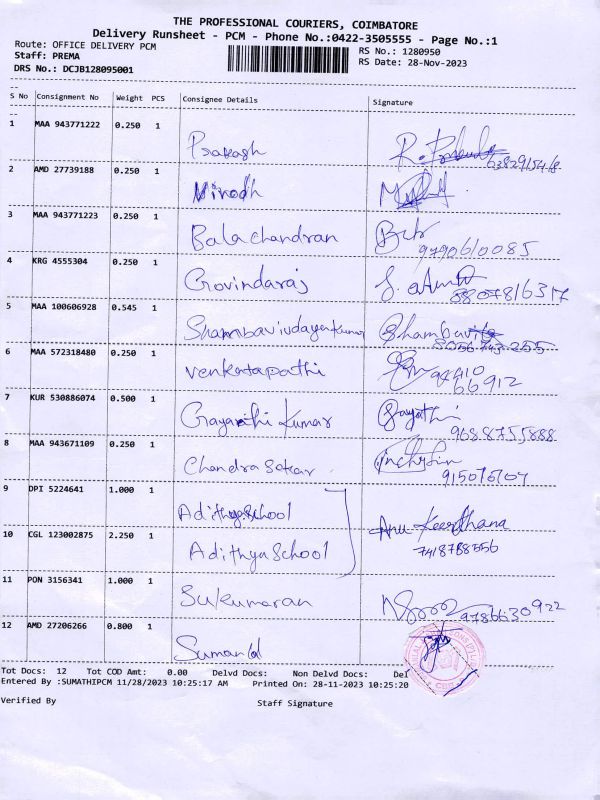 THE PROFESSIONAL COURIERS, COIMBATORE
Delivery Runsheet - PCM - Phone No.:0422-3505555 - Page No.:1
Route: OFFICE DELIVERY PCM
RS No.: 1280950
Staff: PREMA
RS Date: 28-Nov-2023
DRS No.: DCJB128095001
S No Consignment No Weight PCS Consignee Details Signature
1 MAA 943771222 0.250 1 Prakash
2 AMD 27739188 0.250 1 Vinodh
3 MAA 943771223 0.250 1 Bala chandran
9790610085
4 KRG 4555304 0.250 1 Govindaraj
8807816317
5 MAA 100606928 0.545 1
8056743255
6 MAA 572318480 0.250 1 venkatapathi
94410
66912
7 KUR 530886074 0.500 1 Gayathi Kumar Gayathi
9688755888
8 MAA 943671109 0.250 1 Chandra Sekar
9 DPI 5224641 1.000 1 Adithya School
Anu Keerthana
10 CGL 123002875 2.250 1 Adithya School
7418788556
11 PON 3156341 1.000 1 Sukumaran
9786630922
12 AMD 27206266 0.800 1
Tot Docs: 12 Tot COD Amt: 0.00 Delvd Docs: Non Delvd Docs: Del
Entered By :SUMATHIPCM 11/28/2023 10:25:17 AM Printed On: 28-11-2023 10:25:20
Verified By Staff Signature